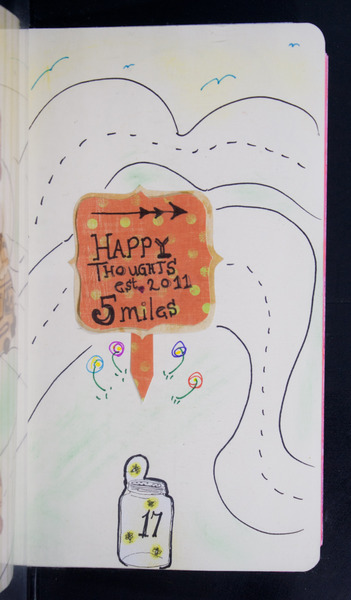 HAPPY
THOUGHTS
est. 2011
5 miles
17